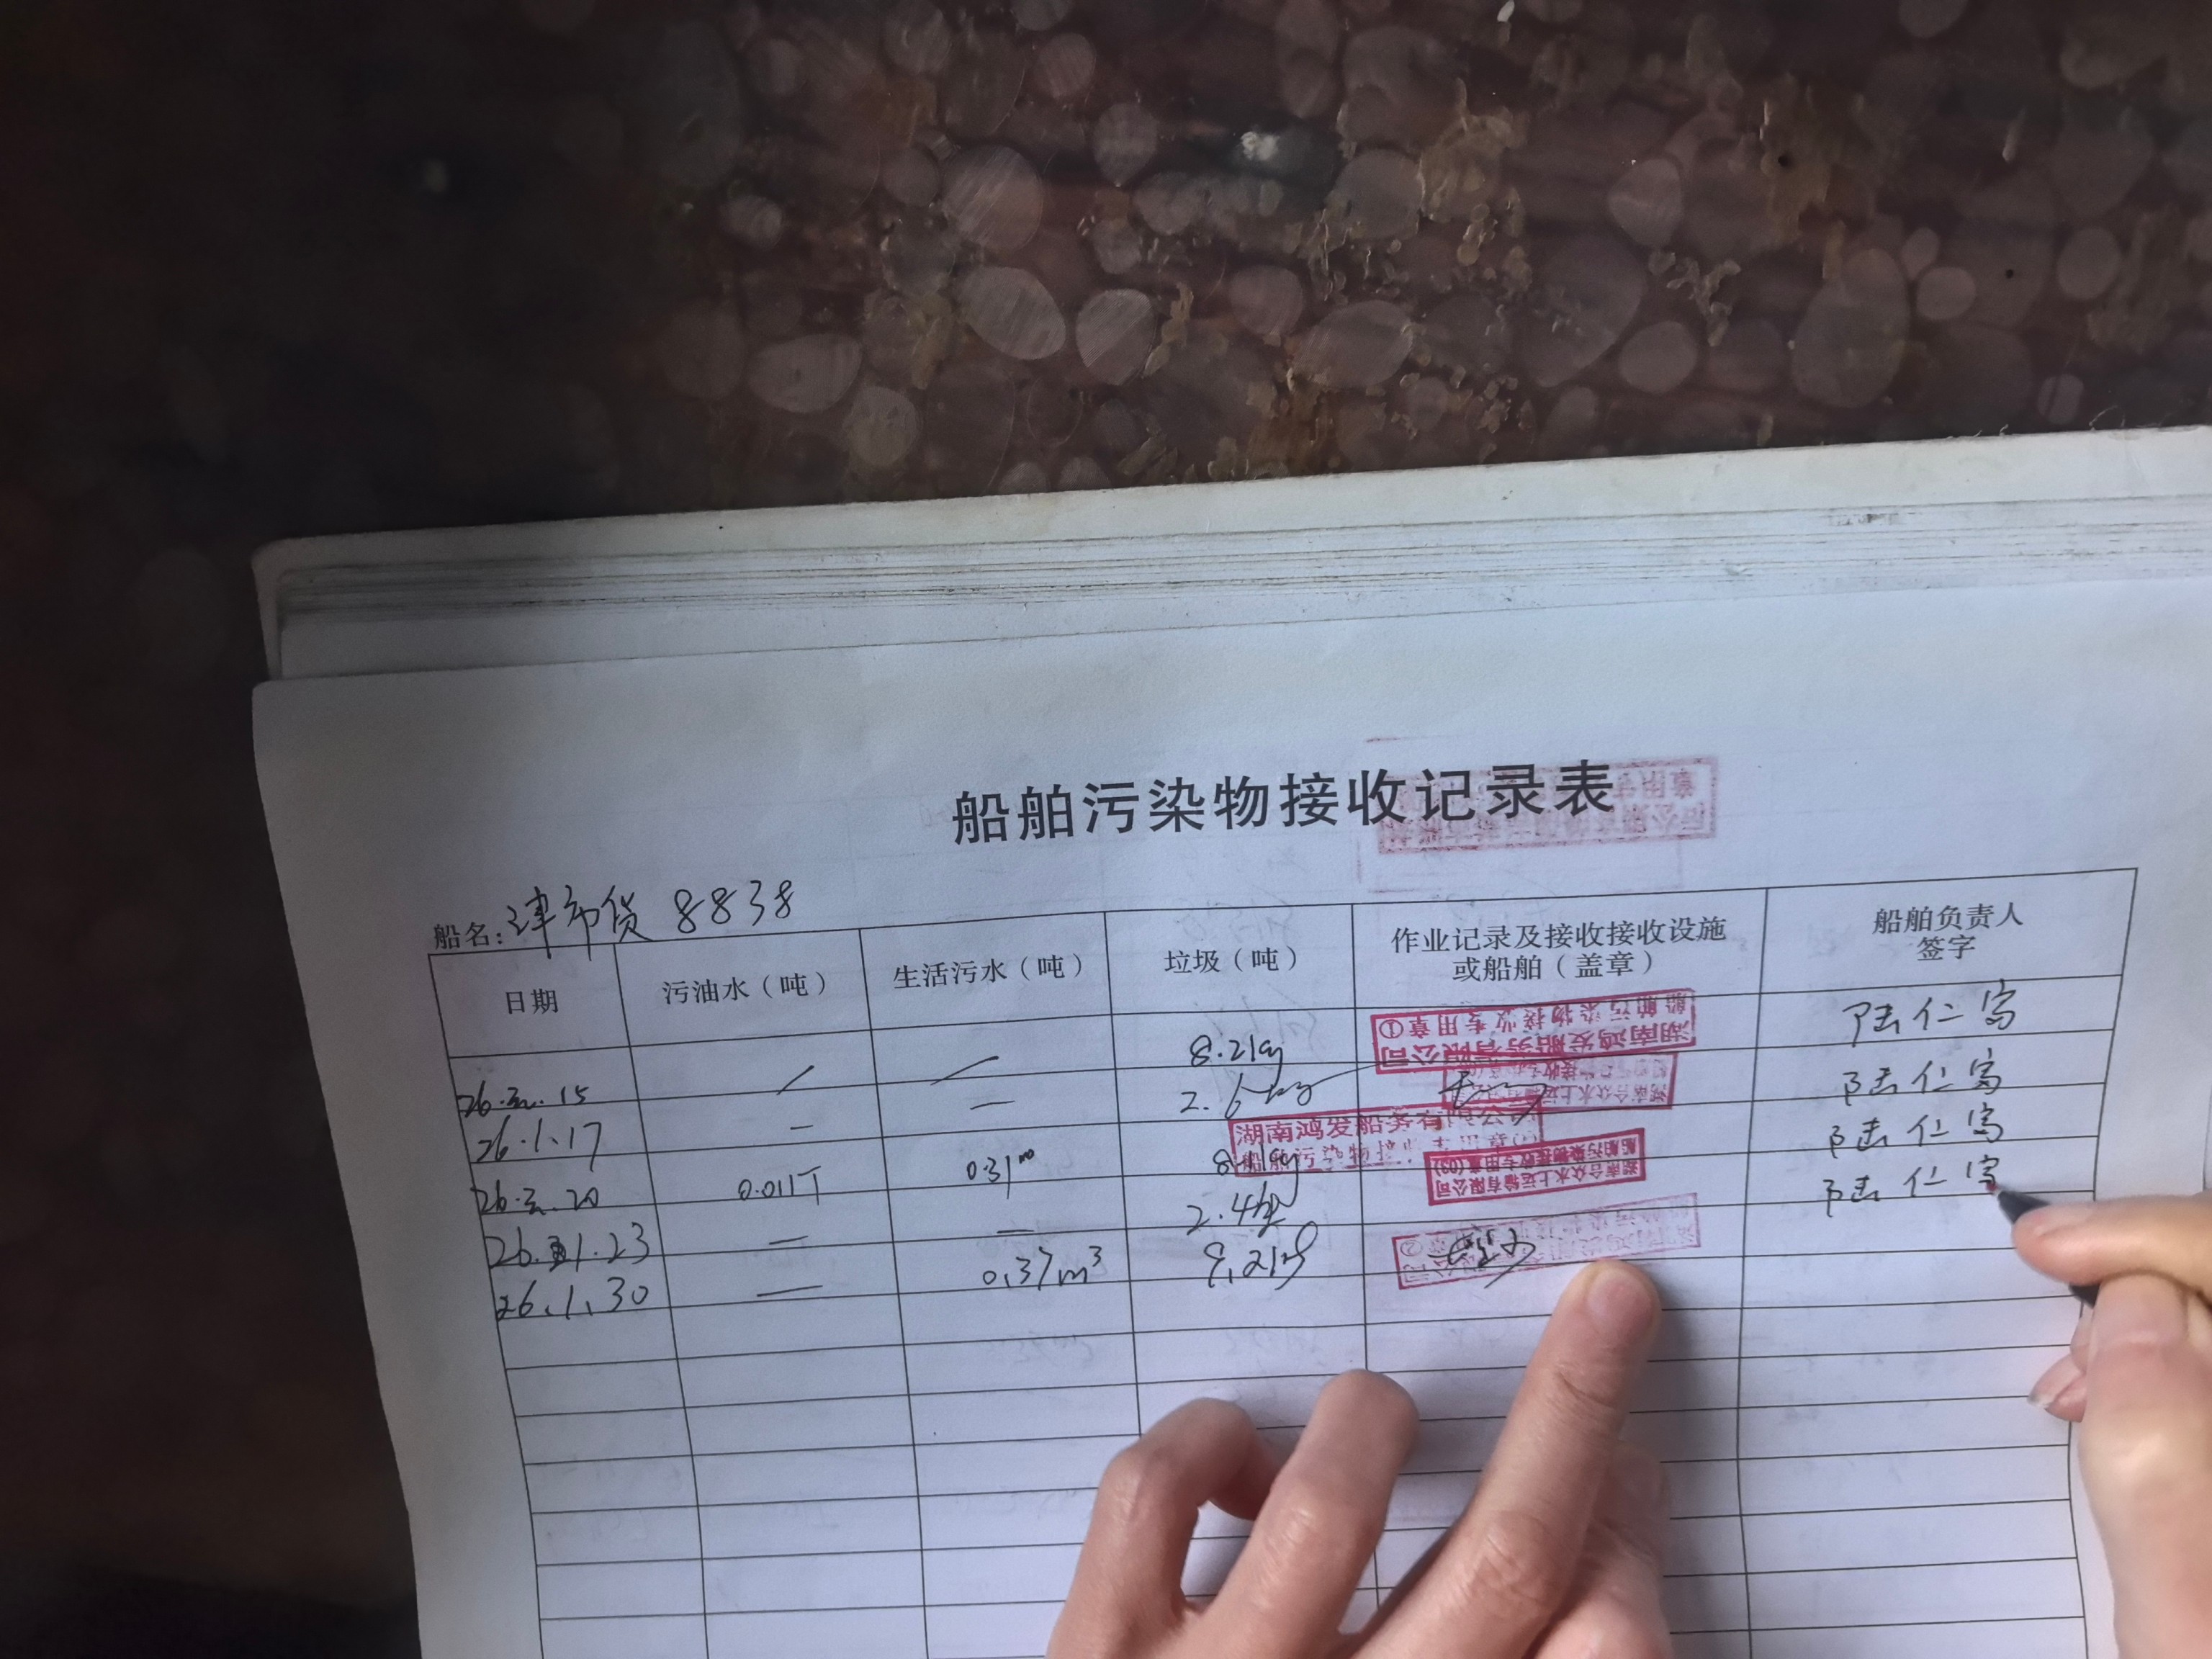 船舶污染物接收记录表
船名：津市货 8838
日期 污油水（吨） 生活污水（吨） 垃圾（吨） 作业记录及接收接收设施或船舶（盖章） 船舶负责人签字
26.元.15 / / 8.21kg 湖南鸿发船务有限公司 船舶污染物接收专用章① 陆仁写
26.1.17 — — 2.6kg 陆仁写
26.元.20 0.011T 0.31m 湖南鸿发船务有 船舶污染物接 湖南合众水上运输有限公司 船舶污染物接收专用章(03) 陆仁写
26.1.23 — — 2.4kg 陆仁写
26.1.30 — 0.37m³ 9.21kg